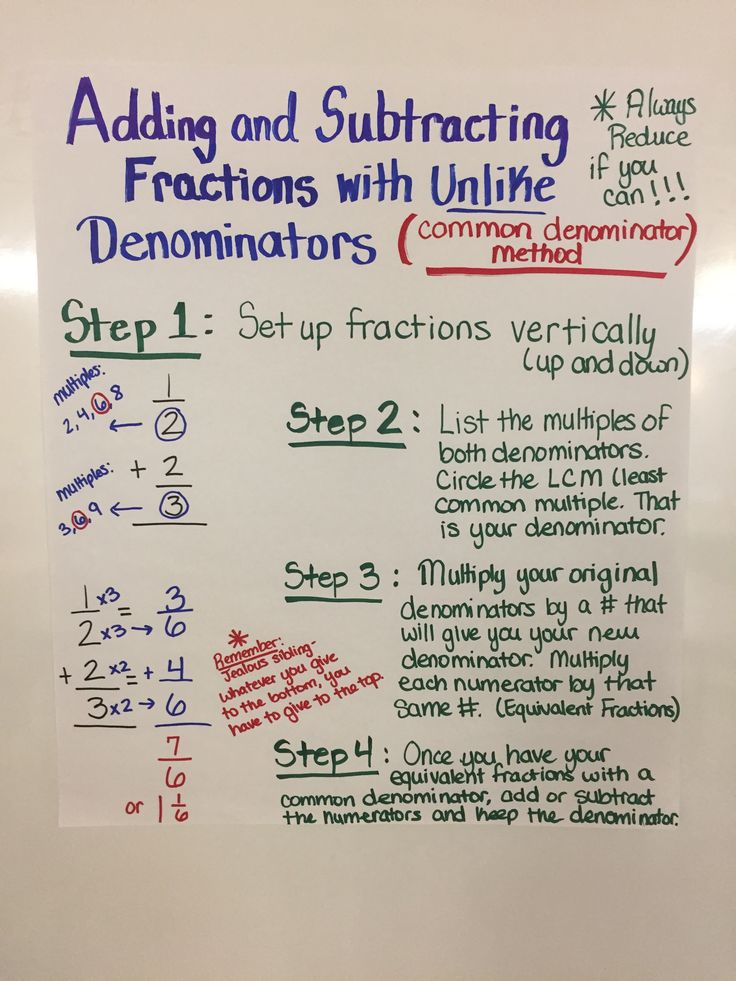 Adding and Subtracting
Fractions with Unlike
Denominators (common denominator)
method
* Always
Reduce
if you
can!!!
Step 1: Set up fractions vertically
(up and down)
multiples:
2, 4, 6, 8
1
2
multiples:
3, 6, 9
+ 2
3
Step 2: List the multiples of
both denominators.
Circle the LCM (least
common multiple. That
is your denominator.
Step 3: Multiply your original
denominators by a # that
will give you your new
denominator. Multiply
each numerator by that
same #. (Equivalent Fractions)
1 x3 = 3
2 x3 → 6
+ 2 x2 = + 4
3 x2 → 6
7
6
or 1 1/6
*
Remember:
Jealous sibling-
whatever you give
to the bottom, you
have to give to the top.
Step 4: Once you have your
equivalent fractions with a
common denominator, add or subtract
the numerators and keep the denominator.